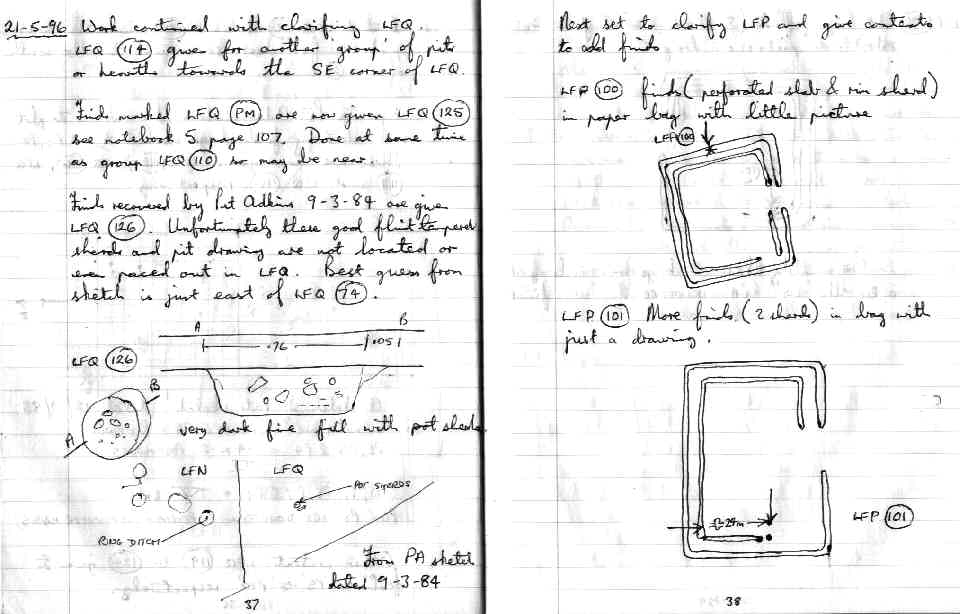 21-5-96 Work continued with clarifying LFQ.
LFQ (114) given for another 'group' of pits
or hearths towards the SE corner of LFQ.
Finds marked LFQ (PM) are now given LFQ (125)
see notebook 5 page 107. Done at same time
as group LFQ (110) so may be near.
Finds recovered by Pat Adkins 9-3-84 are given
LFQ (126). Unfortunately these good flint tempered
sherds and pit drawing are not located or
even paced out in LFQ. Best guess from
sketch is just east of LFQ (74).
A B
.76 .051
LFQ (126)
B
A
very dark fine fill with pot sherds
LFN LFQ
POT SHERDS
RING DITCH
From PA sketch
dated 9-3-84
37
Next set to clarify LFP and give contexts
to add finds
LFP (100) finds (perforated slab & rim sherd)
in paper bag with little picture
LFP (100)
LFP (101) More finds (2 sherds) in bag with
just a drawing.
LFP (101)
38